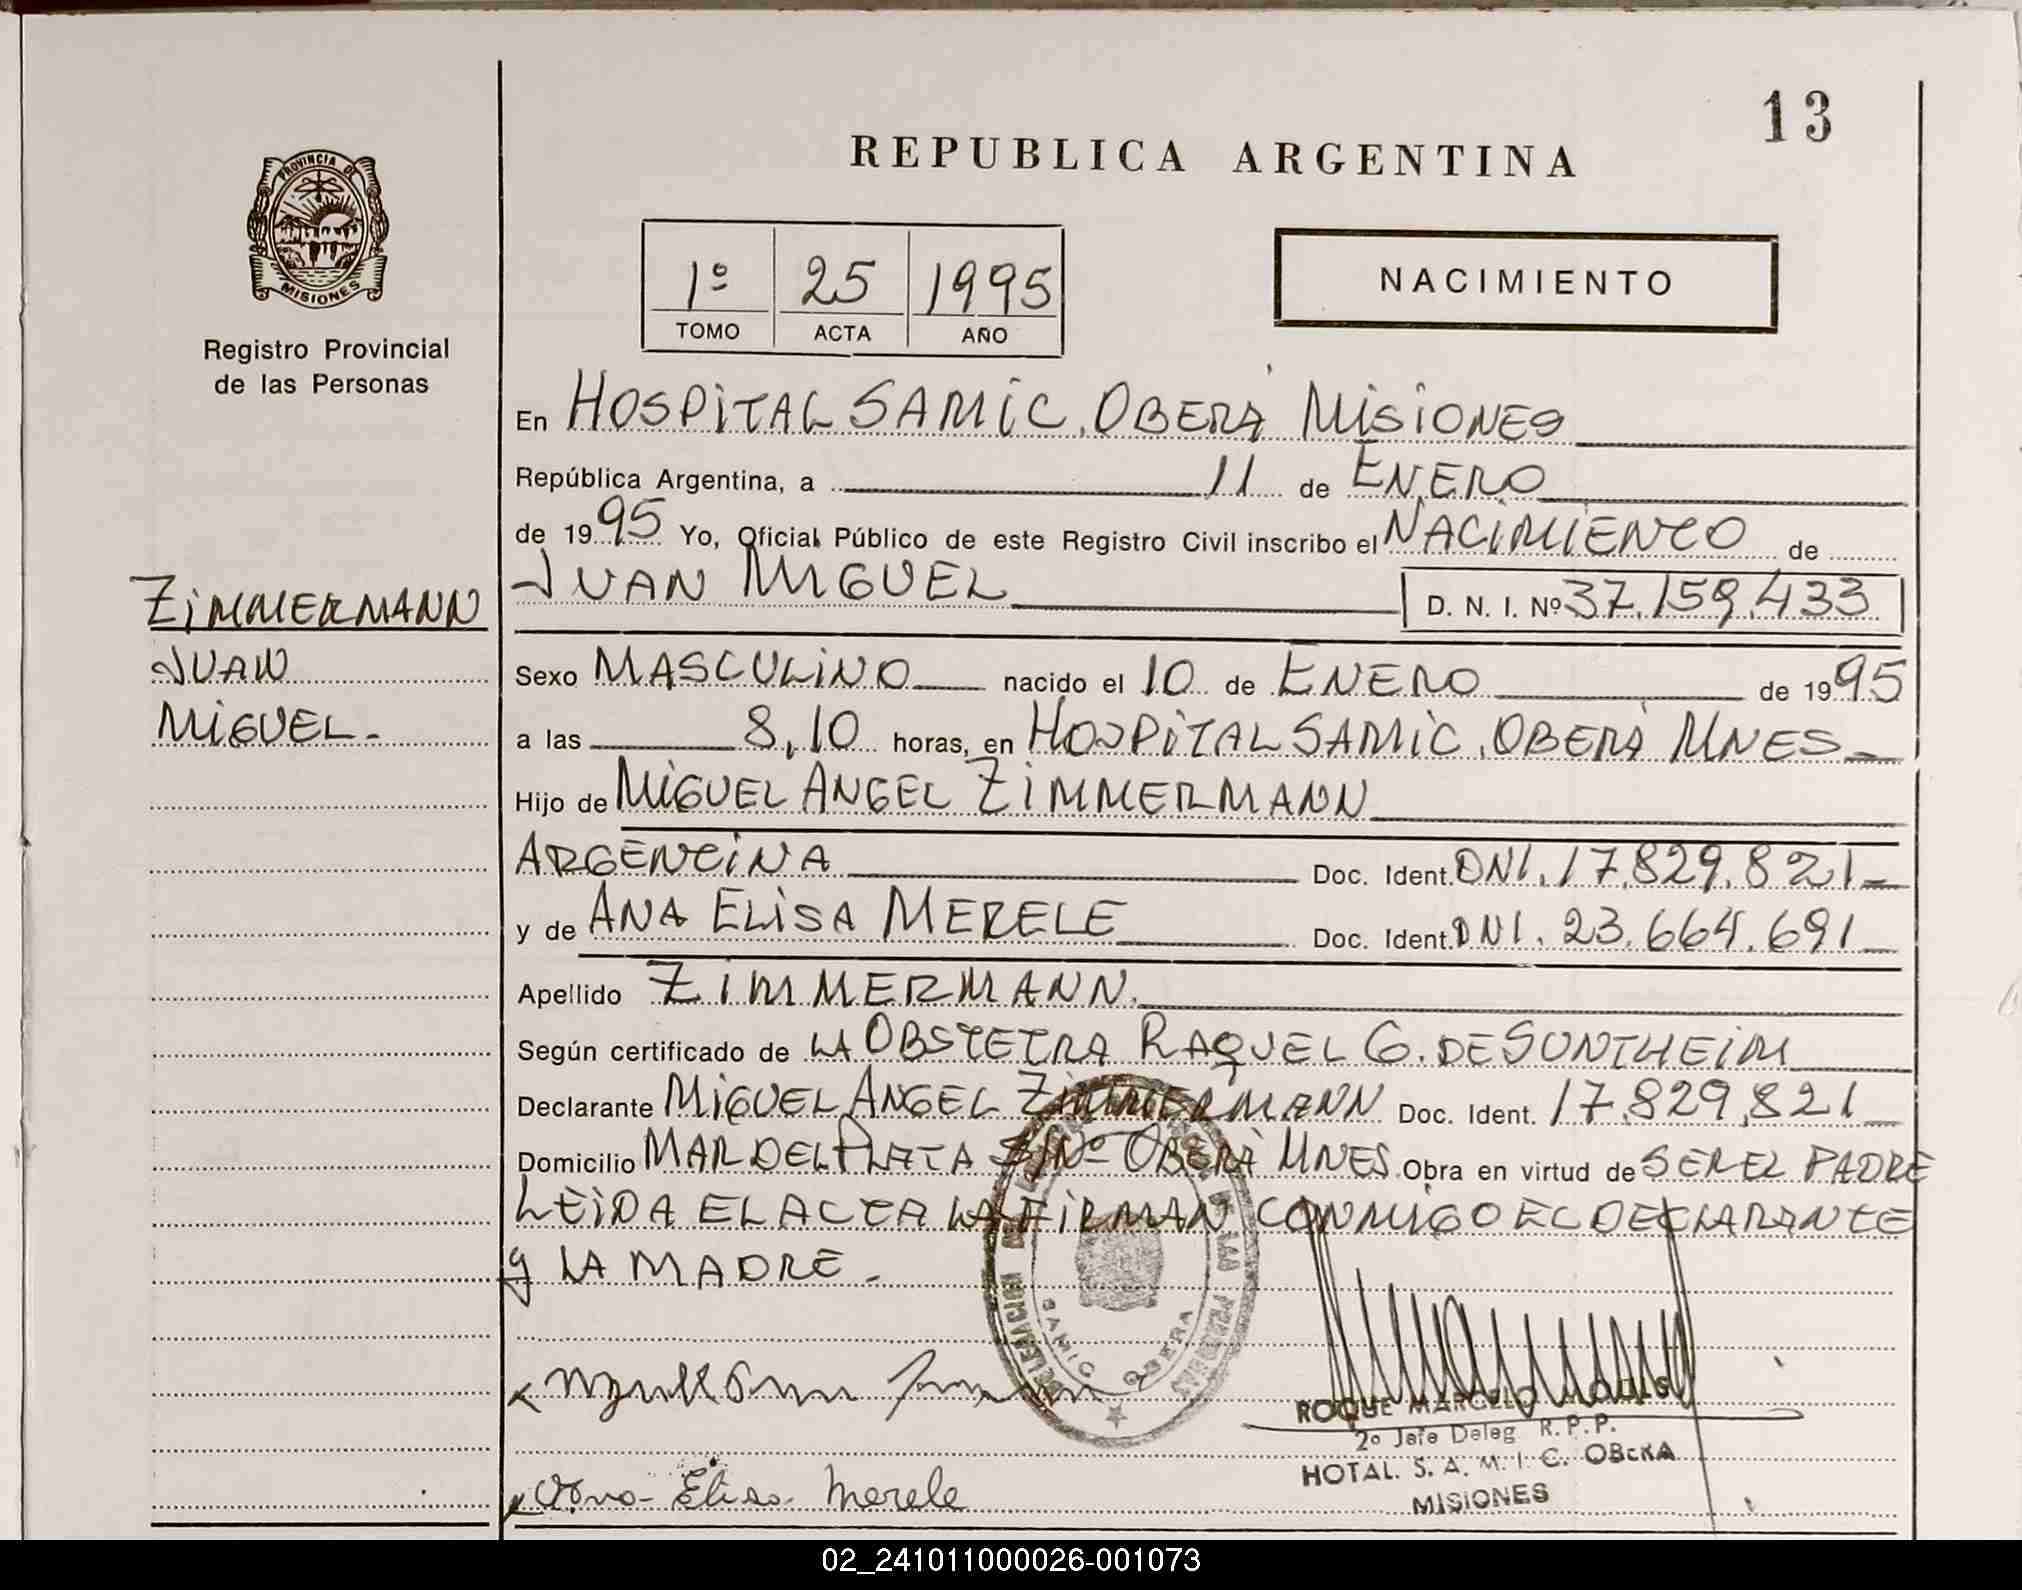 13
REPUBLICA ARGENTINA
PROVINCIA DE
MISIONES
Registro Provincial
de las Personas
1º 25 1995
TOMO ACTA AÑO
NACIMIENTO
En HOSPITAL SAMIC, OBERÁ MISIONES
República Argentina, a 11 de ENERO
de 1995 Yo, Oficial Público de este Registro Civil inscribo el NACIMIENTO de
JUAN MIGUEL D. N. I. Nº 37.159.433
ZIMMERMANN
JUAN
MIGUEL.-
Sexo MASCULINO nacido el 10 de ENERO de 1995
a las 8,10 horas, en HOSPITAL SAMIC, OBERÁ MNES
Hijo de MIGUEL ANGEL ZIMMERMANN
ARGENTINA Doc. Ident. DNI. 17.829.821
y de ANA ELISA MERELE Doc. Ident. DNI. 23.664.691
Apellido ZIMMERMANN.
Según certificado de LA OBSTETRA RAQUEL G. DE SUNTHEIM
Declarante MIGUEL ANGEL ZIMMERMANN Doc. Ident. 17.829.821
Domicilio MAR DEL PLATA S/Nº OBERÁ MNES. Obra en virtud de SER EL PADRE
LEIDA EL ACTA LA FIRMAN CONMIGO EL DECLARANTE
y LA MADRE.
DELEGACION DE LAS PERSONAS
SAMIC OBERA
ROQUE MARCELO
2º Jefe Deleg. R.P.P.
HOTAL. S. A. M. I. C. OBERA
MISIONES
Ana Elisa Merele
02_241011000026-001073